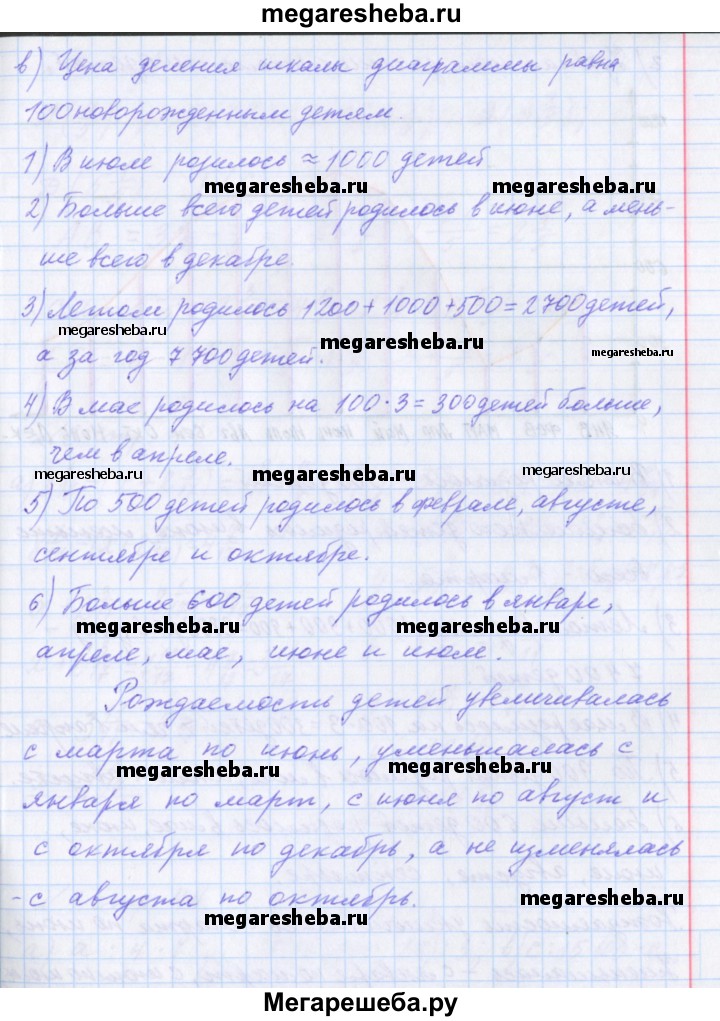 megaresheba.ru
в) Цена деления шкалы диаграммы равна
100 новорожденным детям.
1) В июле родилось ≈ 1000 детей
megaresheba.ru megaresheba.ru
2) Больше всего детей родилось в июне, а мень-
ше всего в декабре.
3) Летом родилось 1200 + 1000 + 500 = 2700 детей,
megaresheba.ru megaresheba.ru megaresheba.ru
а за год 7 700 детей.
4) В мае родилось на 100 · 3 = 300 детей больше,
чем в апреле.
megaresheba.ru megaresheba.ru
5) По 500 детей родилось в феврале, августе,
сентябре и октябре.
6) Больше 600 детей родилось в январе,
megaresheba.ru megaresheba.ru
апреле, мае, июне и июле.
Рождаемость детей увеличивалась
с марта по июнь, уменьшалась с
megaresheba.ru megaresheba.ru
января по март, с июня по август и
с октября по декабрь, а не изменялась
- с августа по октябрь.
megaresheba.ru megaresheba.ru
Мегарешеба.ру